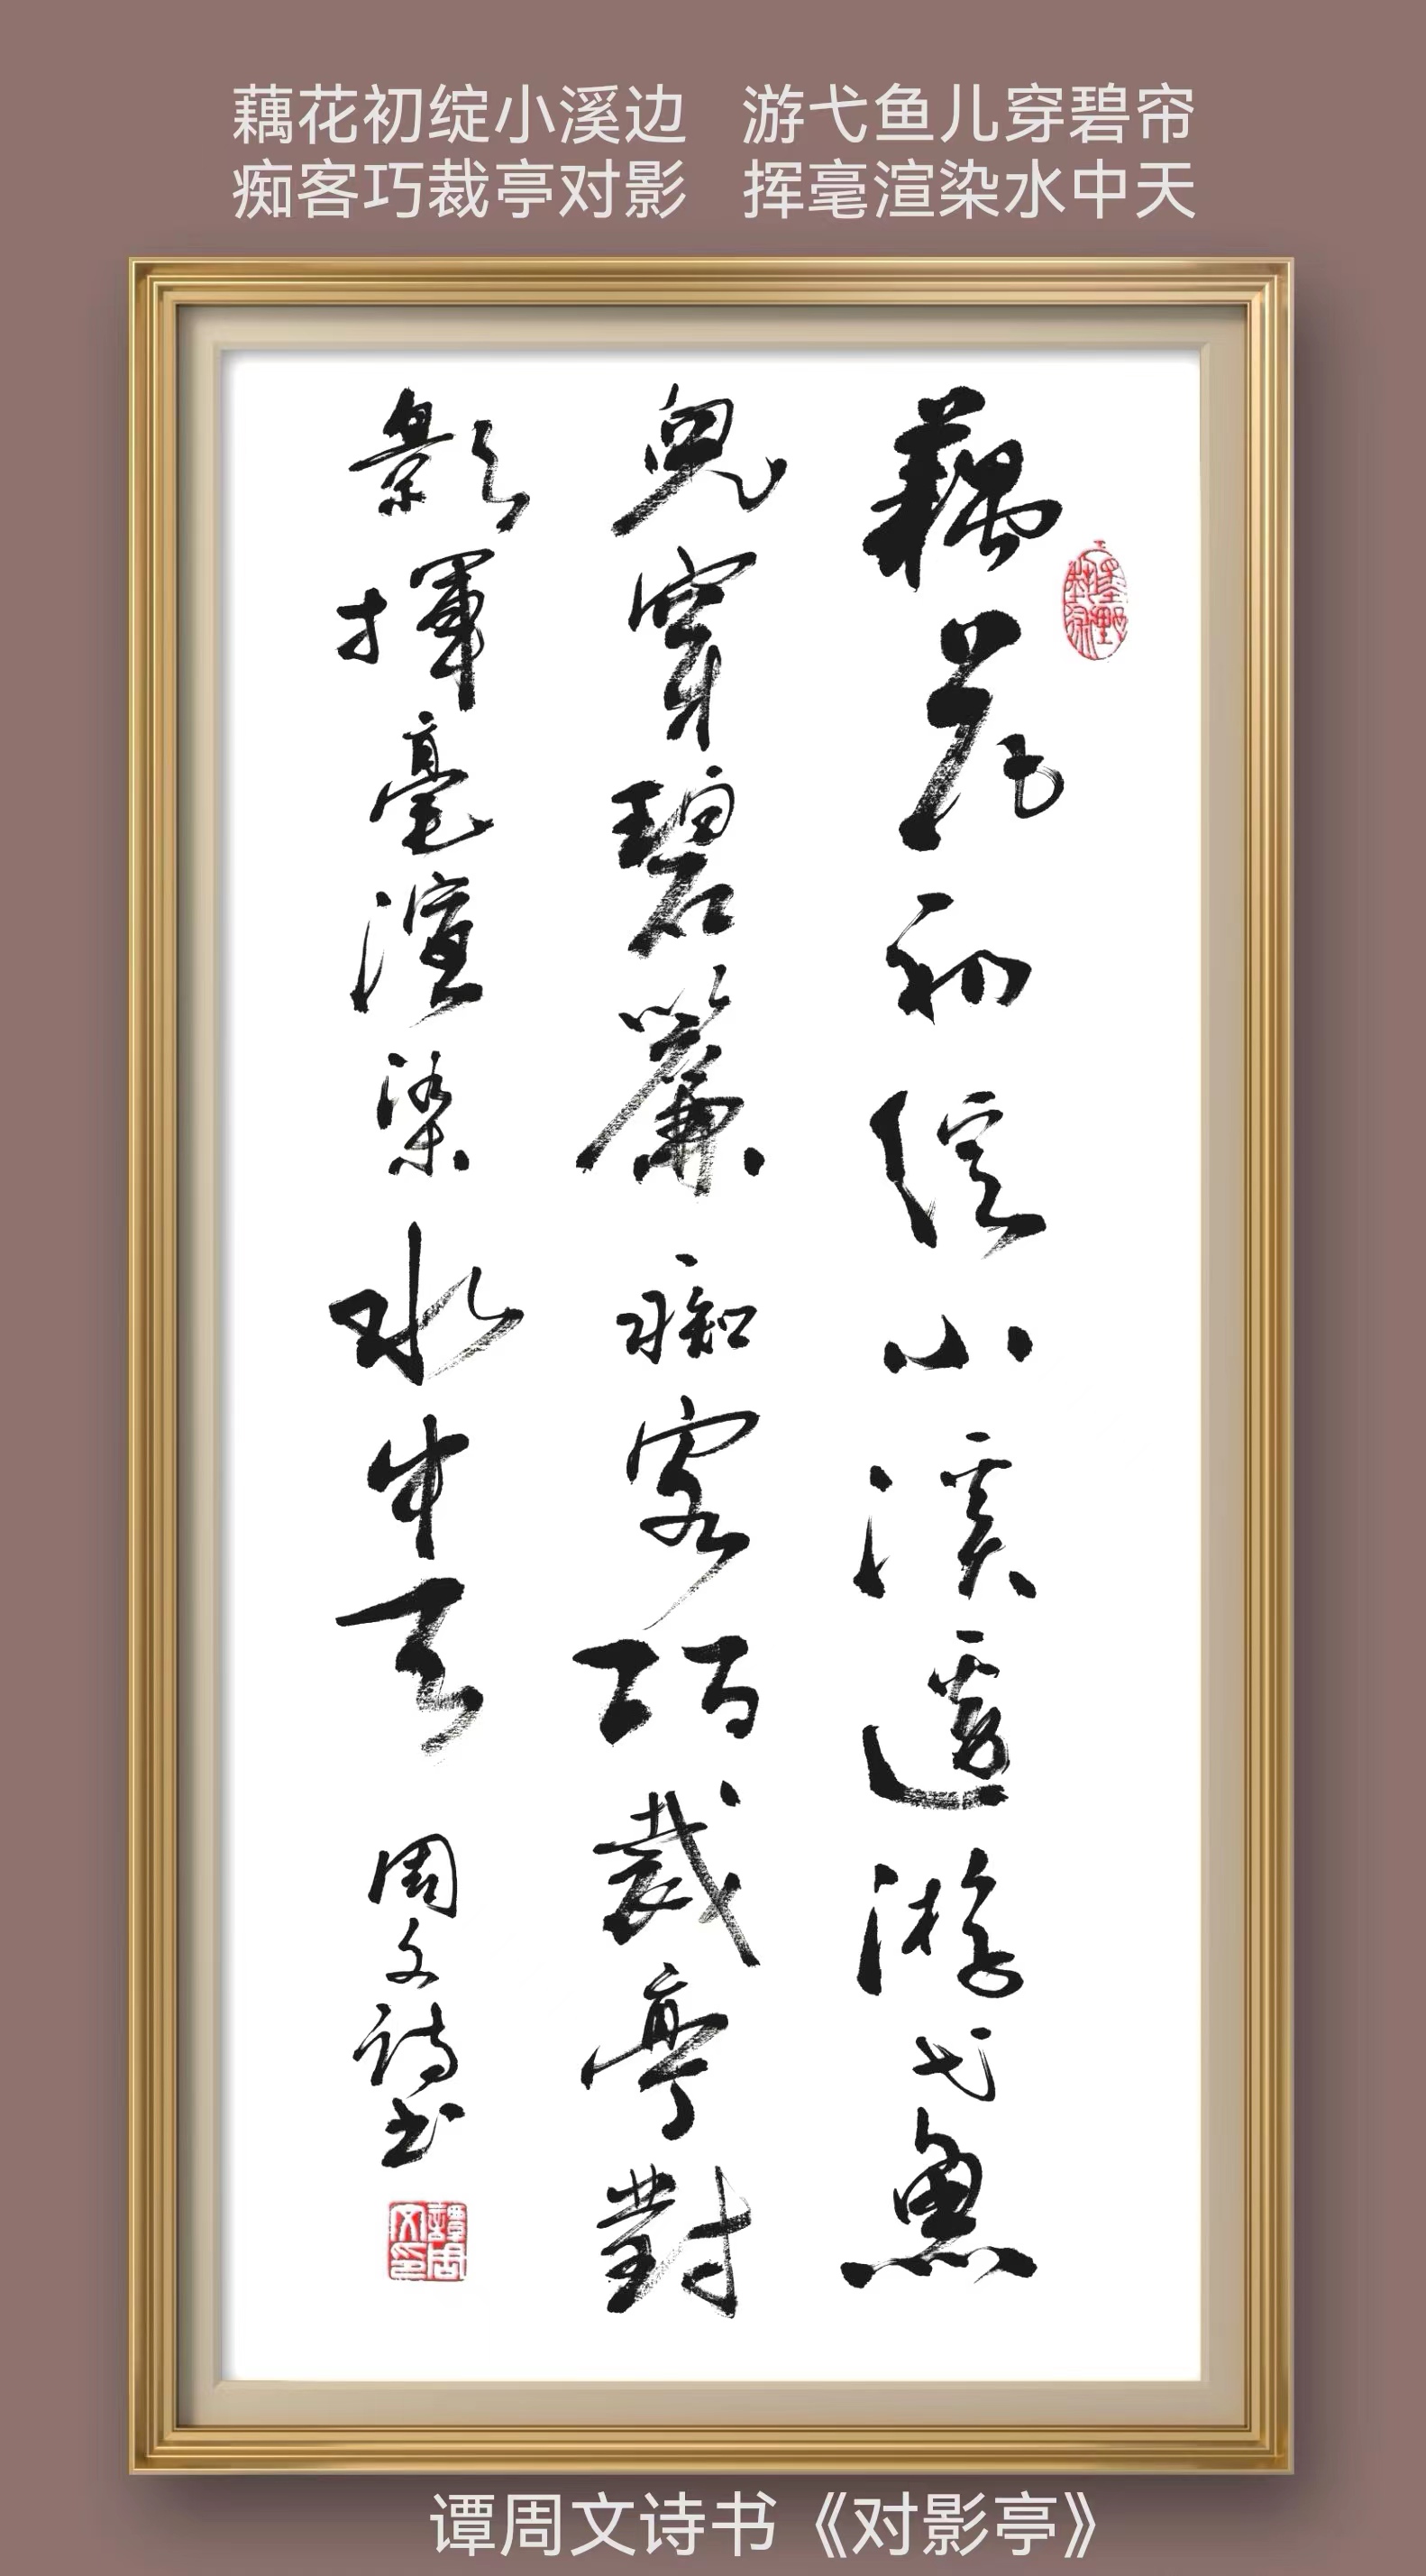 藕花初绽小溪边 游弋鱼儿穿碧帘
痴客巧裁亭对影 挥毫渲染水中天
藕花初綻小溪邊游弋魚
兒穿碧簾痴客巧裁亭對
影揮毫渲染水中天 周文詩书
譚周文印
谭周文诗书《对影亭》